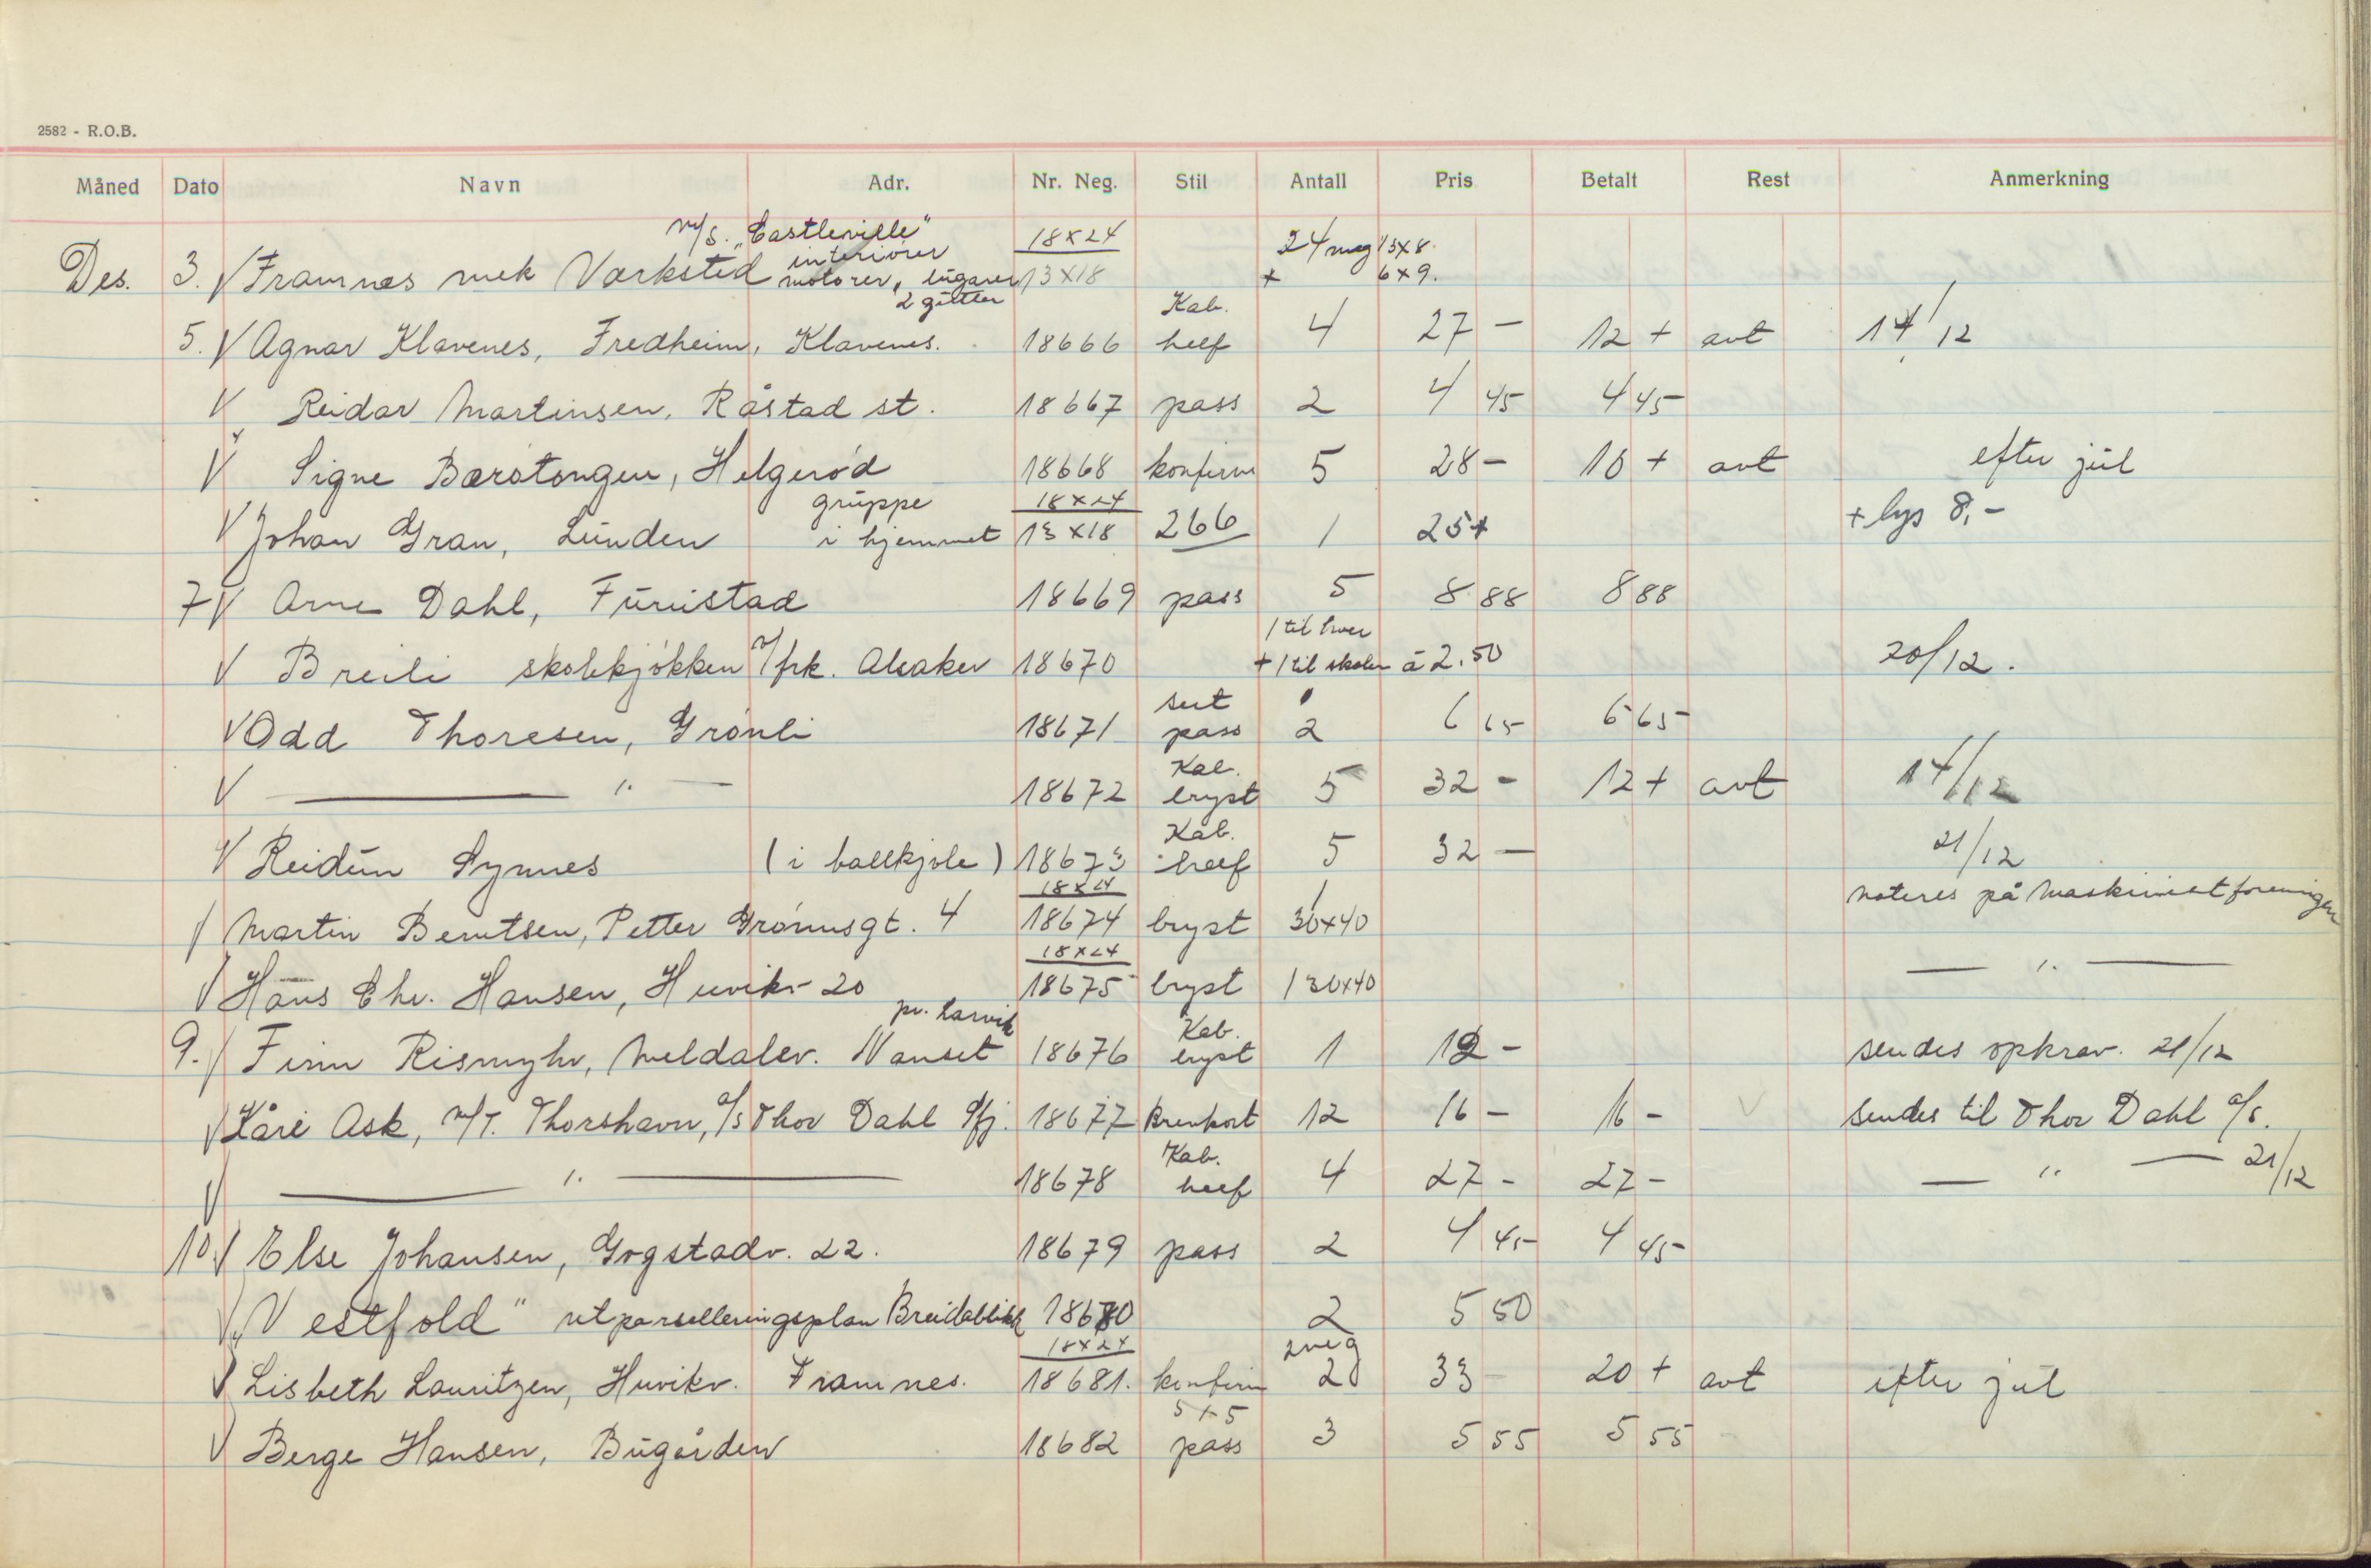 2582 - R.O.B.
Måned Dato Navn Adr. Nr. Neg. Stil Antall Pris Betalt Rest Anmerkning
m/s. „Castleville" 18x24 24 neg 13x8.
interiører
Des. 3. V Framnæs mek Værksted motorer, lugarer 13x18 + 6x9.
2 gutter Kab.
5. V Agnar Klavenes, Fredheim, Klavenes. 18666 heelf 4 27 - 12 + avt 14/12
V Reidar Martinsen, Råstad st. 18667 pass 2 4 45 4 45
V Signe Bærstongen, Helgerød 18668 konfirm 5 28 - 10 + avt efter jul
gruppe 18x24
V Johan Gran, Lunden i hjemmet 13x18 266 1 25 + + lys 8,-
7 V Arne Dahl, Furustad 18669 pass 5 8 88 8 88
1 til hver
V Breili skolekjøkken v/frk. Alsaker 18670 + 1 til skolen à 2.50 20/12.
sert
V Odd Thoresen, Grønli 18671 pass 2 6 65 6 65
Kab.
V — " — 18672 bryst 5 32 - 12 + avt 14/12
Kab.
V Reidun Synnes (i ballkjole) 18673 heelf 5 32 — 21/12
18x24 1 noteres på Maskinistforeningen
V Martin Berntsen, Petter Grønnsgt. 4 18674 bryst 30x40
18x24
V Hans Chr. Hansen, Huvikv 20 18675 bryst 1 30x40 — " —
pr. Larvik Kab.
9. V Finn Rismyhr, Meldalev. Nanset 18676 bryst 1 12 - sendes opkrav. 21/12
V Kåre Ask, M/T. Thorshavn, A/S Thor Dahl Sfj. 18677 Brevkort 12 16 - 16 - V sendes til Thor Dahl A/S.
Kab.
V — " — 18678 heelf 4 27 - 27 - — " — 21/12
10. V Else Johansen, Gogstadv. 22. 18679 pass 2 4 45 4 45
V „Vestfold" utparselleringsplan Breidablikk 18680 2 5 50
18x24 2 neg
V Lisbeth Lauritzen, Huvikv. Framnes. 18681. konfirm 2 33 - 20 + avt efter jul
5+5
V Berge Hansen, Bugården 18682 pass 3 5 55 5 55